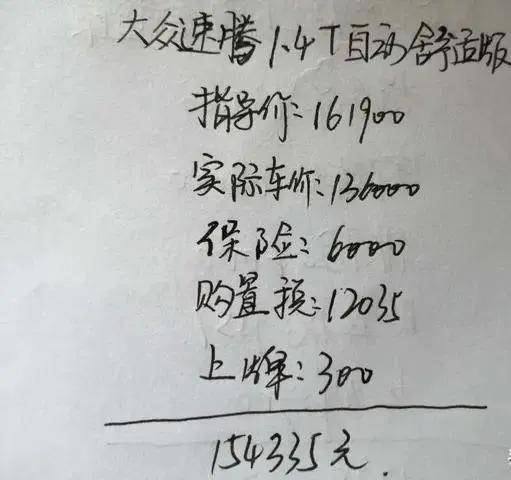 大众速腾1.4T自动舒适版
指导价:161900
实际车价:136000
保险:6000
购置税:12035
上牌:300
154335元.